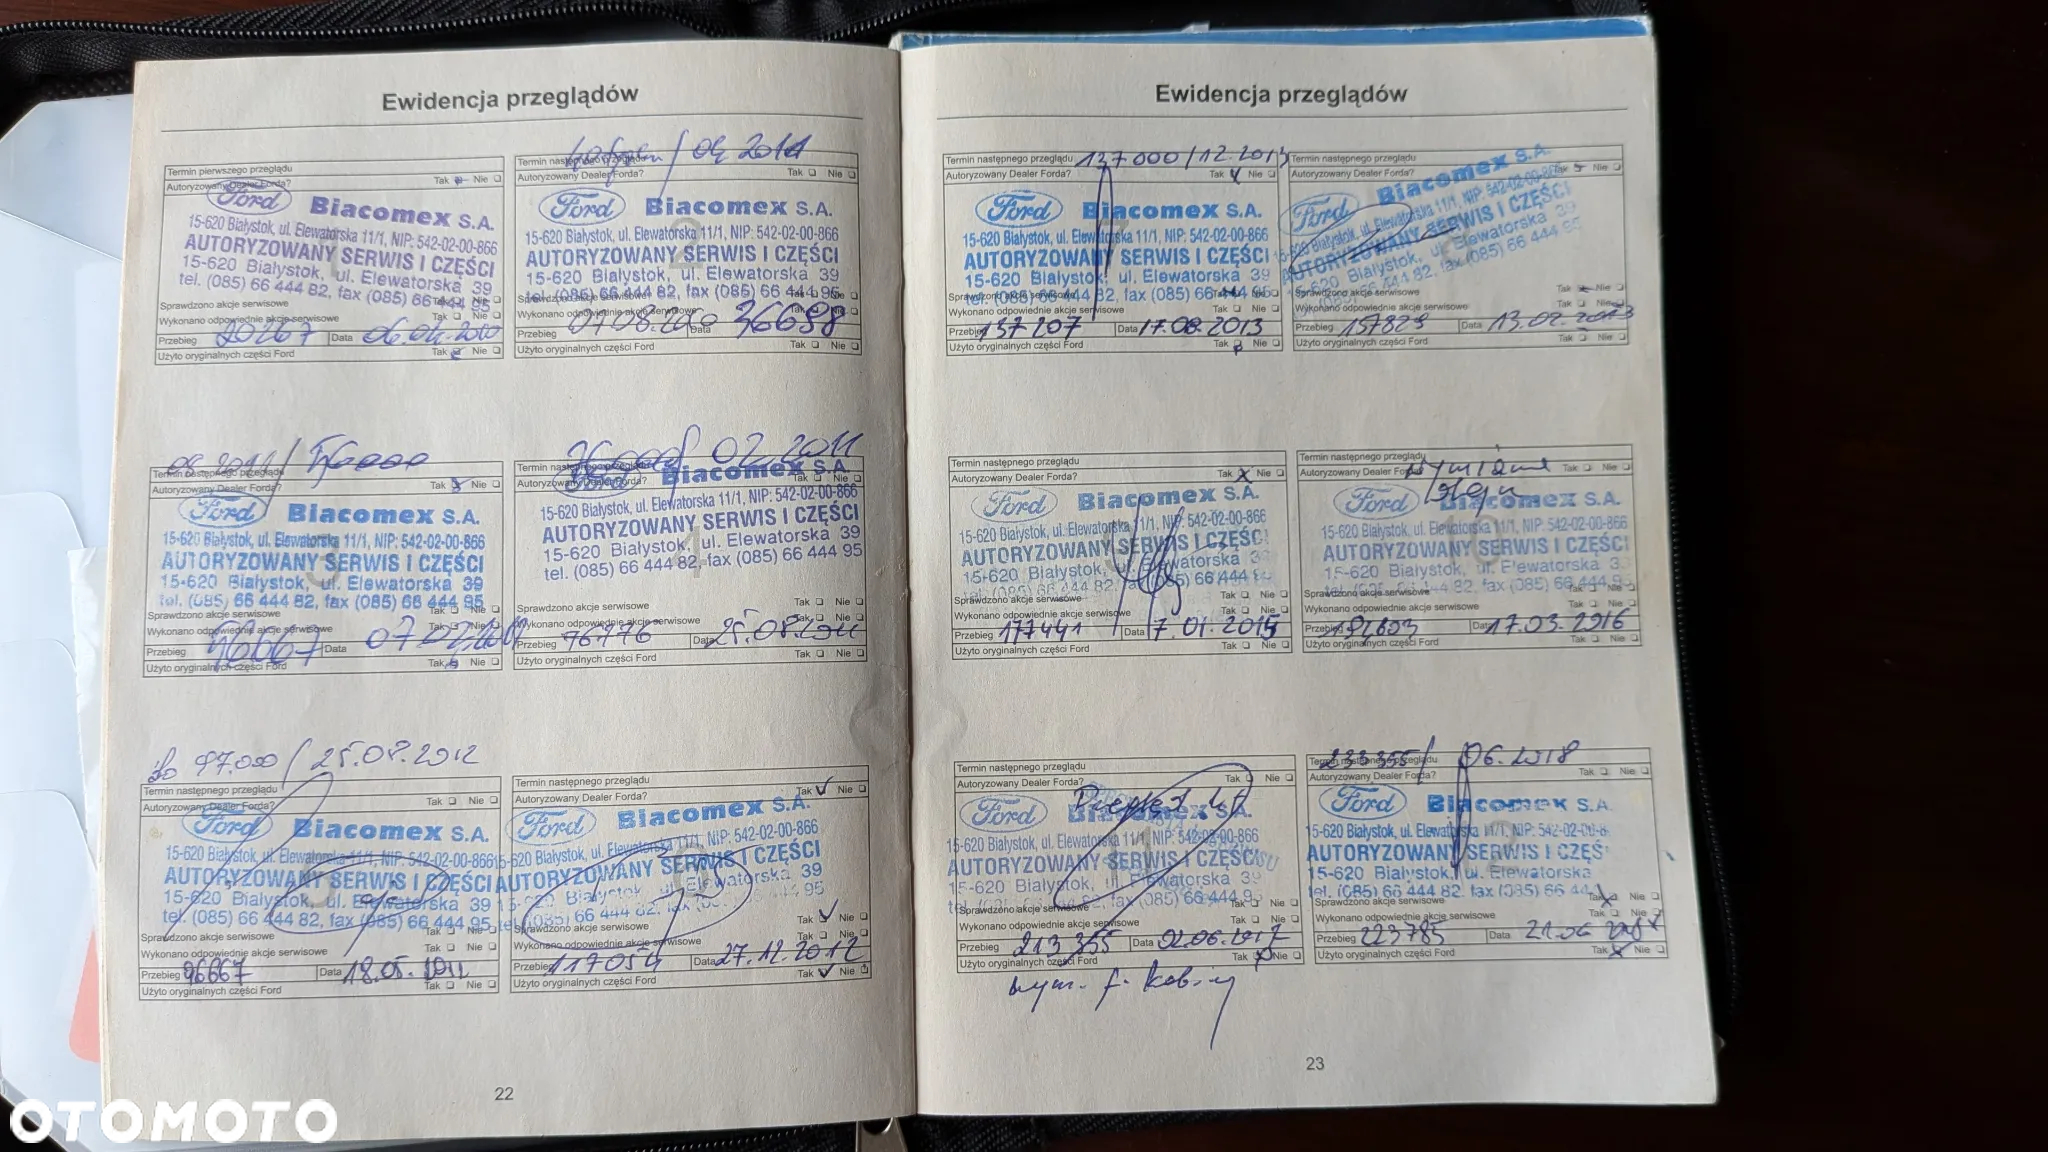 Ewidencja przeglądów
Termin pierwszego przeglądu
Autoryzowany Dealer Forda? Tak Nie
Ford Biacomex S.A.
15-620 Białystok, ul. Elewatorska 11/1, NIP: 542-02-00-866
AUTORYZOWANY SERWIS I CZĘŚCI
15-620 Białystok, ul. Elewatorska 39
tel. (085) 66 444 82, fax (085) 66 444 95
Sprawdzono akcje serwisowe Tak Nie
Wykonano odpowiednie akcje serwisowe Tak Nie
Przebieg 20267 Data 06.04.2010
Użyto oryginalnych części Ford Tak Nie
04 2011
Termin następnego przeglądu
Autoryzowany Dealer Forda? Tak Nie
Ford Biacomex S.A.
15-620 Białystok, ul. Elewatorska 11/1, NIP: 542-02-00-866
AUTORYZOWANY SERWIS I CZĘŚCI
15-620 Białystok, ul. Elewatorska 39
tel. (085) 66 444 82, fax (085) 66 444 95
Sprawdzono akcje serwisowe Tak Nie
Wykonano odpowiednie akcje serwisowe Tak Nie
Przebieg 07.08.2010 Data 36698
Użyto oryginalnych części Ford Tak Nie
Termin następnego przeglądu
Autoryzowany Dealer Forda? Tak Nie
Ford Biacomex S.A.
15-620 Białystok, ul. Elewatorska 11/1, NIP: 542-02-00-866
AUTORYZOWANY SERWIS I CZĘŚCI
15-620 Białystok, ul. Elewatorska 39
tel. (085) 66 444 82, fax (085) 66 444 95
Sprawdzono akcje serwisowe Tak Nie
Wykonano odpowiednie akcje serwisowe Tak Nie
Przebieg Data
Użyto oryginalnych części Ford Tak Nie
02 2011
Termin następnego przeglądu
Autoryzowany Dealer Forda? Tak Nie
Biacomex S.A.
15-620 Białystok, ul. Elewatorska 11/1, NIP: 542-02-00-866
AUTORYZOWANY SERWIS I CZĘŚCI
15-620 Białystok, ul. Elewatorska 39
tel. (085) 66 444 82, fax (085) 66 444 95
Sprawdzono akcje serwisowe Tak Nie
Wykonano odpowiednie akcje serwisowe Tak Nie
Przebieg 76776 Data 25.08.2011
Użyto oryginalnych części Ford Tak Nie
do 97.000 / 25.08.2012
Termin następnego przeglądu
Autoryzowany Dealer Forda? Tak Nie
Ford Biacomex S.A.
15-620 Białystok, ul. Elewatorska 11/1, NIP: 542-02-00-866
AUTORYZOWANY SERWIS I CZĘŚCI
15-620 Białystok, ul. Elewatorska 39
tel. (085) 66 444 82, fax (085) 66 444 95
Sprawdzono akcje serwisowe Tak Nie
Wykonano odpowiednie akcje serwisowe Tak Nie
Przebieg 96667 Data 18.05.2012
Użyto oryginalnych części Ford Tak Nie
Termin następnego przeglądu
Autoryzowany Dealer Forda? Tak Nie
Ford Biacomex S.A.
15-620 Białystok, ul. Elewatorska 11/1, NIP: 542-02-00-866
AUTORYZOWANY SERWIS I CZĘŚCI
15-620 Białystok, ul. Elewatorska 39
tel. (085) 66 444 82, fax (085) 66 444 95
Sprawdzono akcje serwisowe Tak Nie
Wykonano odpowiednie akcje serwisowe Tak Nie
Przebieg 117054 Data 27.12.2012
Użyto oryginalnych części Ford Tak Nie
22
Ewidencja przeglądów
Termin następnego przeglądu 137000/12.2013
Autoryzowany Dealer Forda? Tak Nie
Ford Biacomex S.A.
15-620 Białystok, ul. Elewatorska 11/1, NIP: 542-02-00-866
AUTORYZOWANY SERWIS I CZĘŚCI
15-620 Białystok, ul. Elewatorska 39
tel. (085) 66 444 82, fax (085) 66 444 95
Sprawdzono akcje serwisowe Tak Nie
Wykonano odpowiednie akcje serwisowe Tak Nie
Przebieg 137207 Data 17.08.2013
Użyto oryginalnych części Ford Tak Nie
Termin następnego przeglądu
Autoryzowany Dealer Forda? Tak Nie
Ford Biacomex S.A.
15-620 Białystok, ul. Elewatorska 11/1, NIP: 542-02-00-866
AUTORYZOWANY SERWIS I CZĘŚCI
15-620 Białystok, ul. Elewatorska 39
tel. (085) 66 444 82, fax (085) 66 444 95
Sprawdzono akcje serwisowe Tak Nie
Wykonano odpowiednie akcje serwisowe Tak Nie
Przebieg 157829 Data 13.02.2013
Użyto oryginalnych części Ford Tak Nie
Termin następnego przeglądu
Autoryzowany Dealer Forda? Tak Nie
Ford Biacomex S.A.
15-620 Białystok, ul. Elewatorska 11/1, NIP: 542-02-00-866
AUTORYZOWANY SERWIS I CZĘŚCI
15-620 Białystok, ul. Elewatorska 39
tel. (085) 66 444 82, fax (085) 66 444
Sprawdzono akcje serwisowe Tak Nie
Wykonano odpowiednie akcje serwisowe Tak Nie
Przebieg 177441 Data 7.01.2015
Użyto oryginalnych części Ford Tak Nie
Termin następnego przeglądu
Autoryzowany Dealer Forda? Wymiana Tak Nie
oleju
Ford Biacomex S.A.
15-620 Białystok, ul. Elewatorska 11/1, NIP: 542-02-00-866
AUTORYZOWANY SERWIS I CZĘŚCI
15-620 Białystok, ul. Elewatorska 3
tel. (085) 66 444 82, fax (085) 66 444 9
Sprawdzono akcje serwisowe Tak Nie
Wykonano odpowiednie akcje serwisowe Tak Nie
Przebieg Data 17.03.2016
Użyto oryginalnych części Ford Tak Nie
Termin następnego przeglądu
Autoryzowany Dealer Forda? Tak Nie
Przegląd
Ford Biacomex S.A.
15-620 Białystok, ul. Elewatorska 11/1, NIP: 542-02-00-866
AUTORYZOWANY SERWIS I CZĘŚCI
15-620 Białystok, ul. Elewatorska 39
tel. (085) 66 444 82, fax (085) 66 444 95
Sprawdzono akcje serwisowe Tak Nie
Wykonano odpowiednie akcje serwisowe Tak Nie
Przebieg 213355 Data 02.06.2017
Użyto oryginalnych części Ford Tak Nie
wym. f. kabiny
233355/ 06.2018
Termin następnego przeglądu
Autoryzowany Dealer Forda? Tak Nie
Ford Biacomex S.A.
15-620 Białystok, ul. Elewatorska 11/1, NIP: 542-02-00-8
AUTORYZOWANY SERWIS I CZĘŚ
15-620 Białystok, ul. Elewatorska
tel. (085) 66 444 82, fax (085) 66 44
Sprawdzono akcje serwisowe Tak Nie
Wykonano odpowiednie akcje serwisowe Tak Nie
Przebieg 223785 Data 21.06
Użyto oryginalnych części Ford Tak Nie
23
OTOMOTO